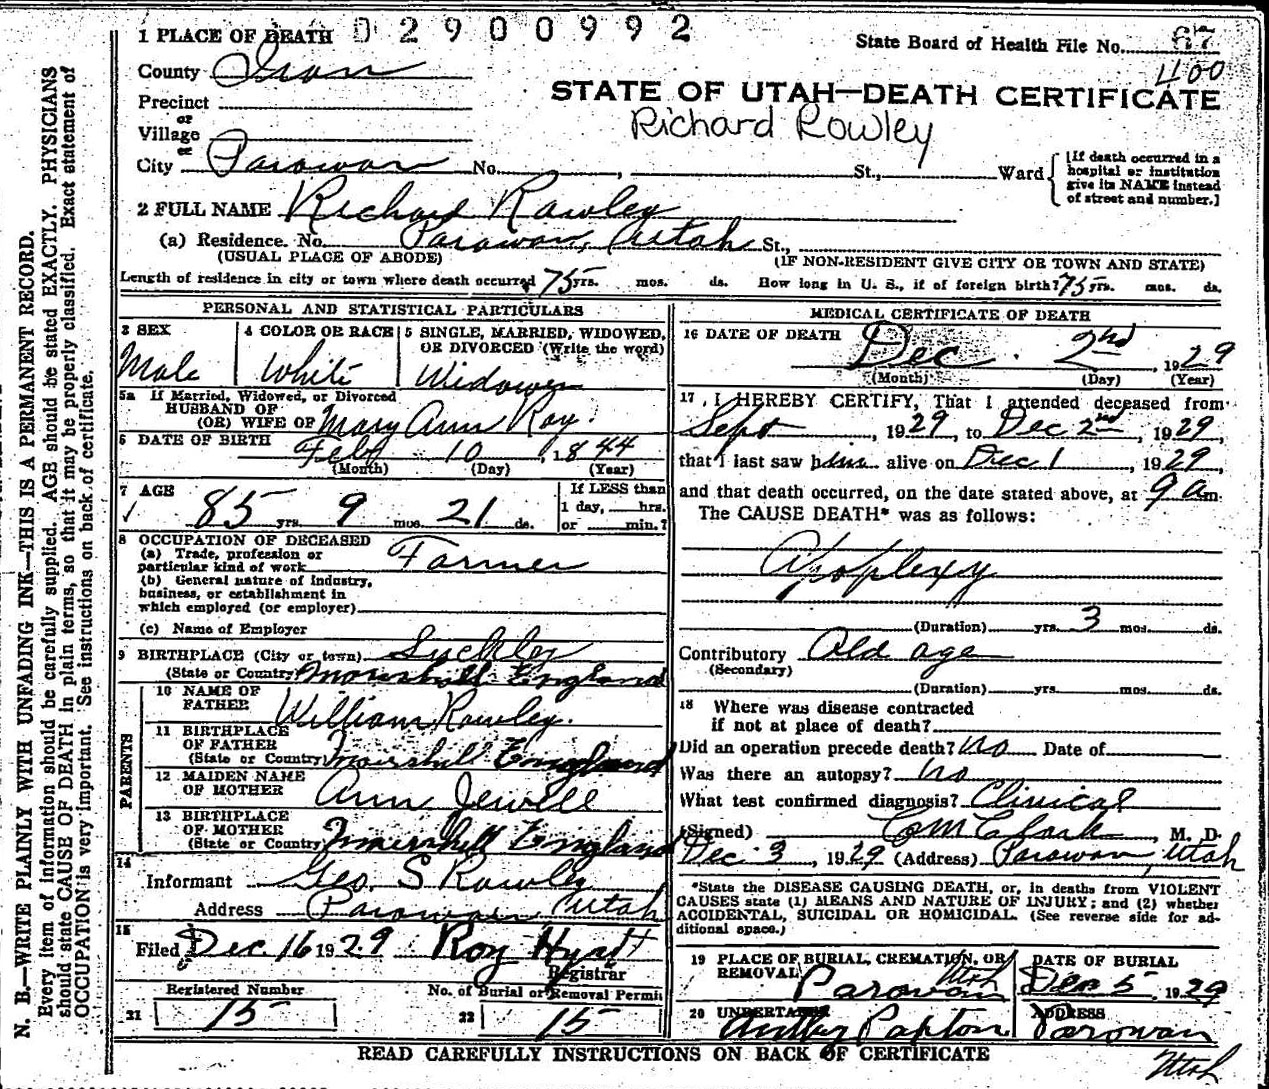 02900992
1 PLACE OF DEATH
State Board of Health File No. 67
1100
County Iron
STATE OF UTAH—DEATH CERTIFICATE
Precinct
or
Richard Rowley
Village
or
City Parowan No. , St., Ward
[If death occurred in a hospital or institution give its NAME instead of street and number.]
2 FULL NAME Richard Rowley
(a) Residence. No. Parowan, Utah St.,
(USUAL PLACE OF ABODE) (IF NON-RESIDENT GIVE CITY OR TOWN AND STATE)
Length of residence in city or town where death occurred 75 yrs. mos. ds. How long in U. S., if of foreign birth? 75 yrs. mos. ds.
PERSONAL AND STATISTICAL PARTICULARS
3 SEX Male
4 COLOR OR RACE White
5 SINGLE, MARRIED, WIDOWED, OR DIVORCED (Write the word) Widower
5a If Married, Widowed, or Divorced
HUSBAND OF
(OR) WIFE OF Mary Ann Roy.
6 DATE OF BIRTH Feb 10, 1844
(Month) (Day) (Year)
7 AGE 85 yrs. 9 mos. 21 ds.
If LESS than 1 day, hrs. or min.?
8 OCCUPATION OF DECEASED
(a) Trade, profession or particular kind of work Farmer
(b) General nature of Industry, business, or establishment in which employed (or employer)
(c) Name of Employer
9 BIRTHPLACE (City or town) Suckley
(State or Country) England
PARENTS
10 NAME OF FATHER William Rowley.
11 BIRTHPLACE OF FATHER
(State or Country) England
12 MAIDEN NAME OF MOTHER Ann Jewell
13 BIRTHPLACE OF MOTHER
(State or Country) England
14
Informant Geo. S Rowley
Address Parowan Utah
15
Filed Dec. 16 1929 Roy Hyatt
Registrar
Registered Number
21 15
No. of Burial or Removal Permit
22 15
MEDICAL CERTIFICATE OF DEATH
16 DATE OF DEATH Dec. 2nd, 1929
(Month) (Day) (Year)
17 I HEREBY CERTIFY, That I attended deceased from
Sept, 1929, to Dec 2nd, 1929,
that I last saw him alive on Dec 1, 1929,
and that death occurred, on the date stated above, at 9 am.
The CAUSE DEATH* was as follows:
Apoplexy
(Duration) yrs. 3 mos. ds.
Contributory Old age
(Secondary)
(Duration) yrs. mos. ds.
18 Where was disease contracted
if not at place of death?
Did an operation precede death? no Date of
Was there an autopsy? no
What test confirmed diagnosis? Clinical
(Signed) C M Clark, M. D.
Dec 3, 1929 (Address) Parowan, Utah
*State the DISEASE CAUSING DEATH, or, in deaths from VIOLENT
CAUSES state (1) MEANS AND NATURE OF INJURY; and (2) whether
ACCIDENTAL, SUICIDAL OR HOMICIDAL. (See reverse side for ad-
ditional space.)
19 PLACE OF BURIAL, CREMATION, OR REMOVAL Parowan Utah
DATE OF BURIAL Dec 5 1929
20 UNDERTAKER
ADDRESS Parowan
Utah
READ CAREFULLY INSTRUCTIONS ON BACK OF CERTIFICATE
N. B.—WRITE PLAINLY WITH UNFADING INK—THIS IS A PERMANENT RECORD.
Every item of information should be carefully supplied. AGE should be stated EXACTLY. PHYSICIANS
should state CAUSE OF DEATH in plain terms, so that it may be properly classified. Exact statement of
OCCUPATION is very important. See instructions on back of certificate.